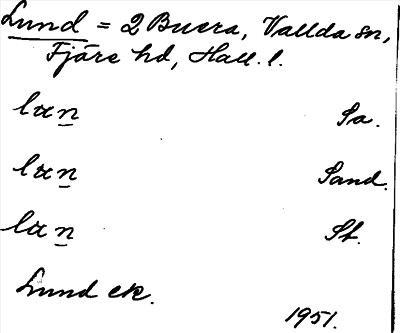 Lund = 2 Buera, Vallda sn,
Fjäre hd, Hall. l.
lun Sa.
lun Sand.
lun St.
Lund ek.
1951.